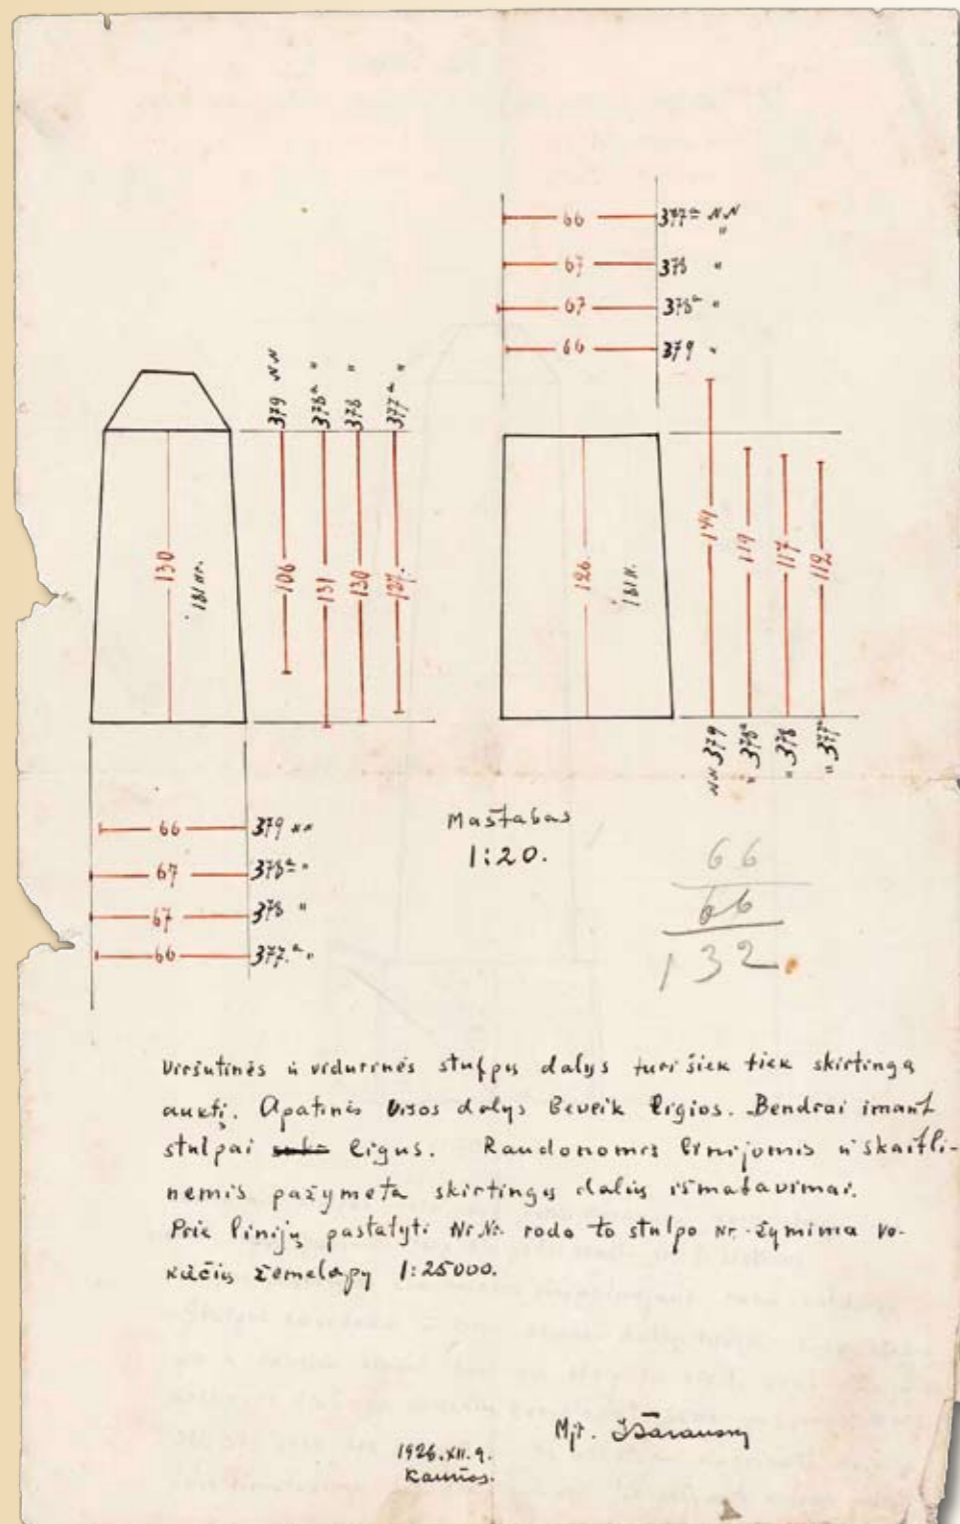 66 377ª NN
"
67 378 "
67 378ª "
66 379 "
379 NN
378ª "
378 "
377ª "
130
181 Nr.
106
131
130
127.
126.
181 N.
144
119
117
112
NN 379
" 378ª
" 378
" 377ª
66 379 NN
67 378ª "
67 378 "
66 377.ª "
Maštabas
1:20.
66
66
132
Viršutinės ir vidurinės stulpų dalys turi šiek tiek skirtingą
aukštį. Apatinės visos dalys beveik ligios. Bendrai imant
stulpai ligus. Raudonomis linijomis ir skaitli-
nemis pažymėta skirtingų dalių išmatavimai.
Prie linijų pastatyti Nr.Nr. rodo to stulpo nr. žymima vo-
kiečių žemėlapy 1:25000.
Mjr.
1926.XII.9.
Kaunas.